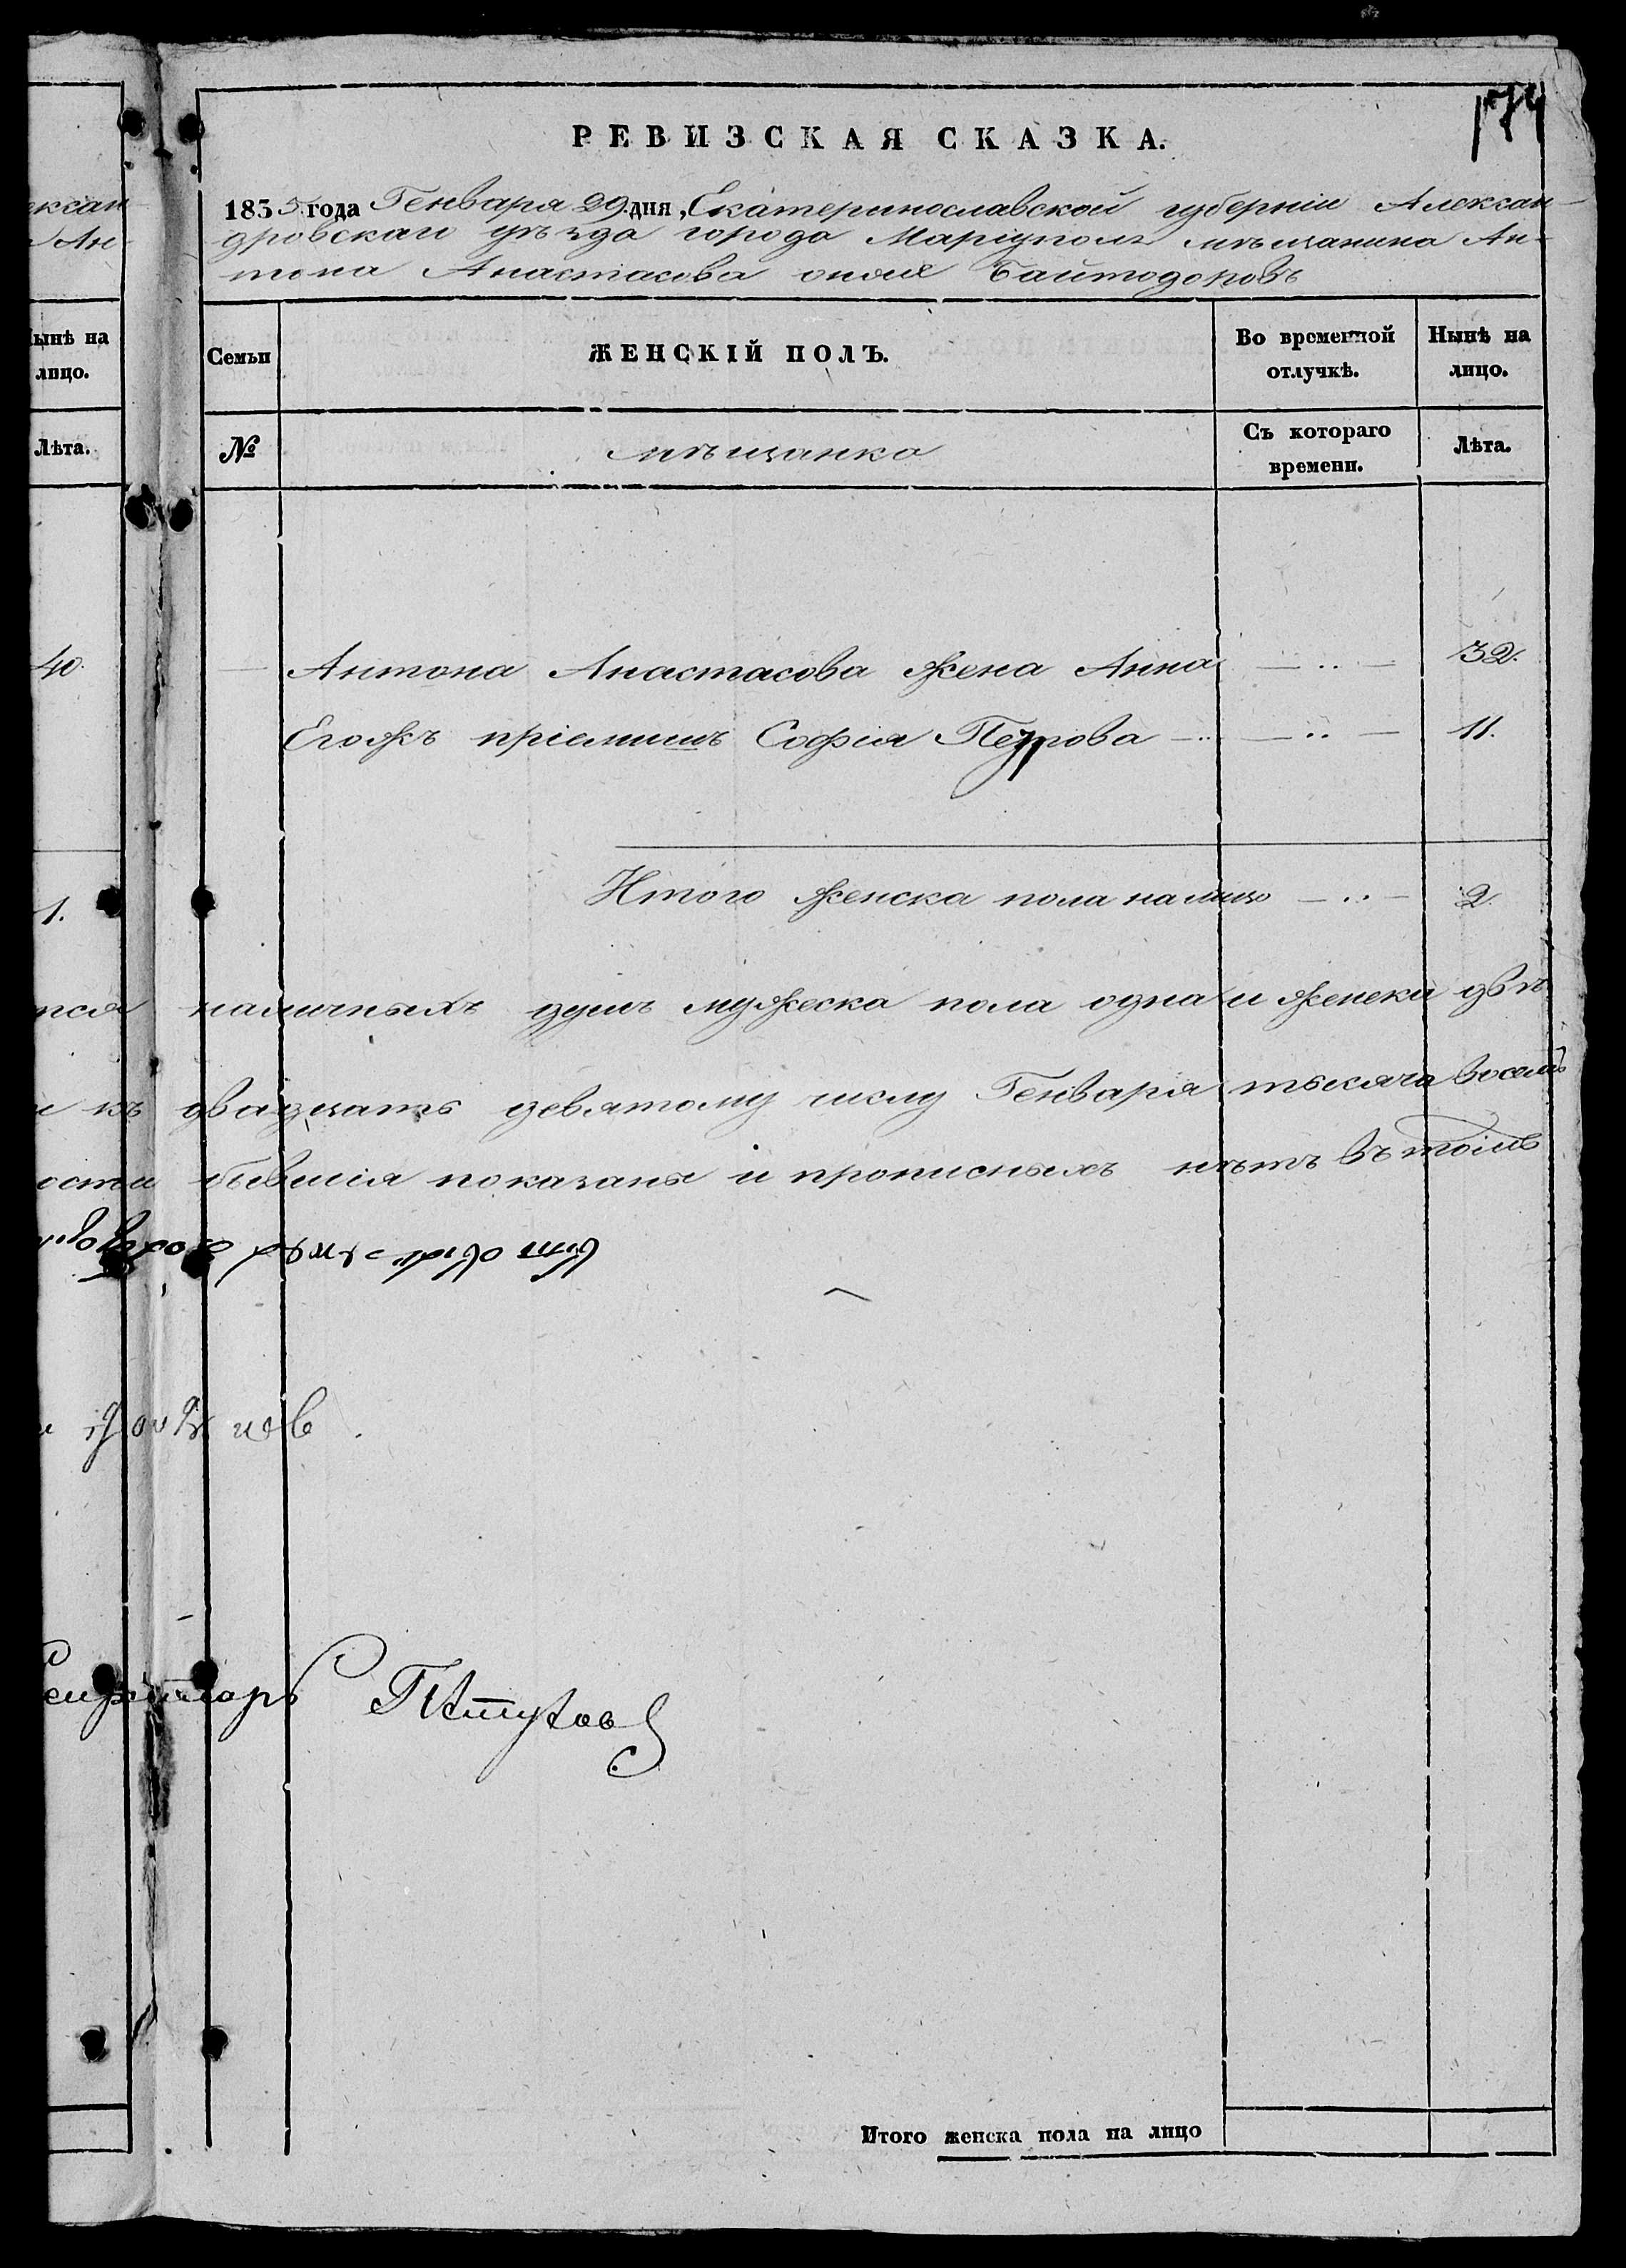 174
РЕВИЗСКАЯ СКАЗКА.
1835 года Генваря 29 дня, Екатеринославской губерніи Алексан-
дровскаго уѣзда города Маріуполя мѣщанина Ан-
тона Анастасова онже Байтодоровъ
ексан
Ан-
Нынѣ на лицо.
Лѣта.
Семьи
ЖЕНСКІЙ ПОЛЪ.
Во временной отлучкѣ.
Нынѣ на лицо.
№
мѣщанка
Съ котораго времени.
Лѣта.
40.
Антона Анастасова жена Анна — .. — 32.
Егожъ пріемышъ Софія Петрова — .. — .. — 11.
Итого женска пола налицо — .. — 2.
1.
тся наличныхъ душъ мужеска пола одна и женска двѣ
къ двадцать девятому числу Генваря тысяча восемь
ости бывшія показаны и прописныхъ нѣтъ въ томъ
Секретарь Пѣтуховъ
Итого женска пола на лицо